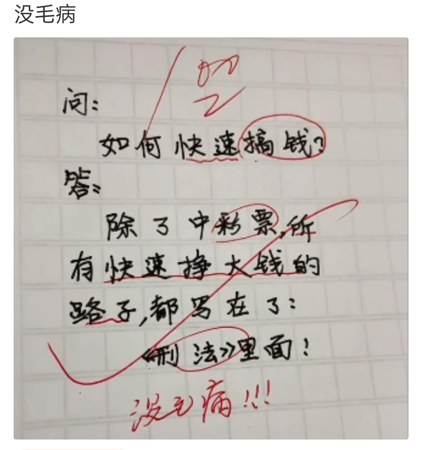 没毛病
问:
如何快速搞钱?
答:
除了中彩票,所
有快速挣大钱的
路子,都写在了:
《刑法》里面!
没毛病!!!